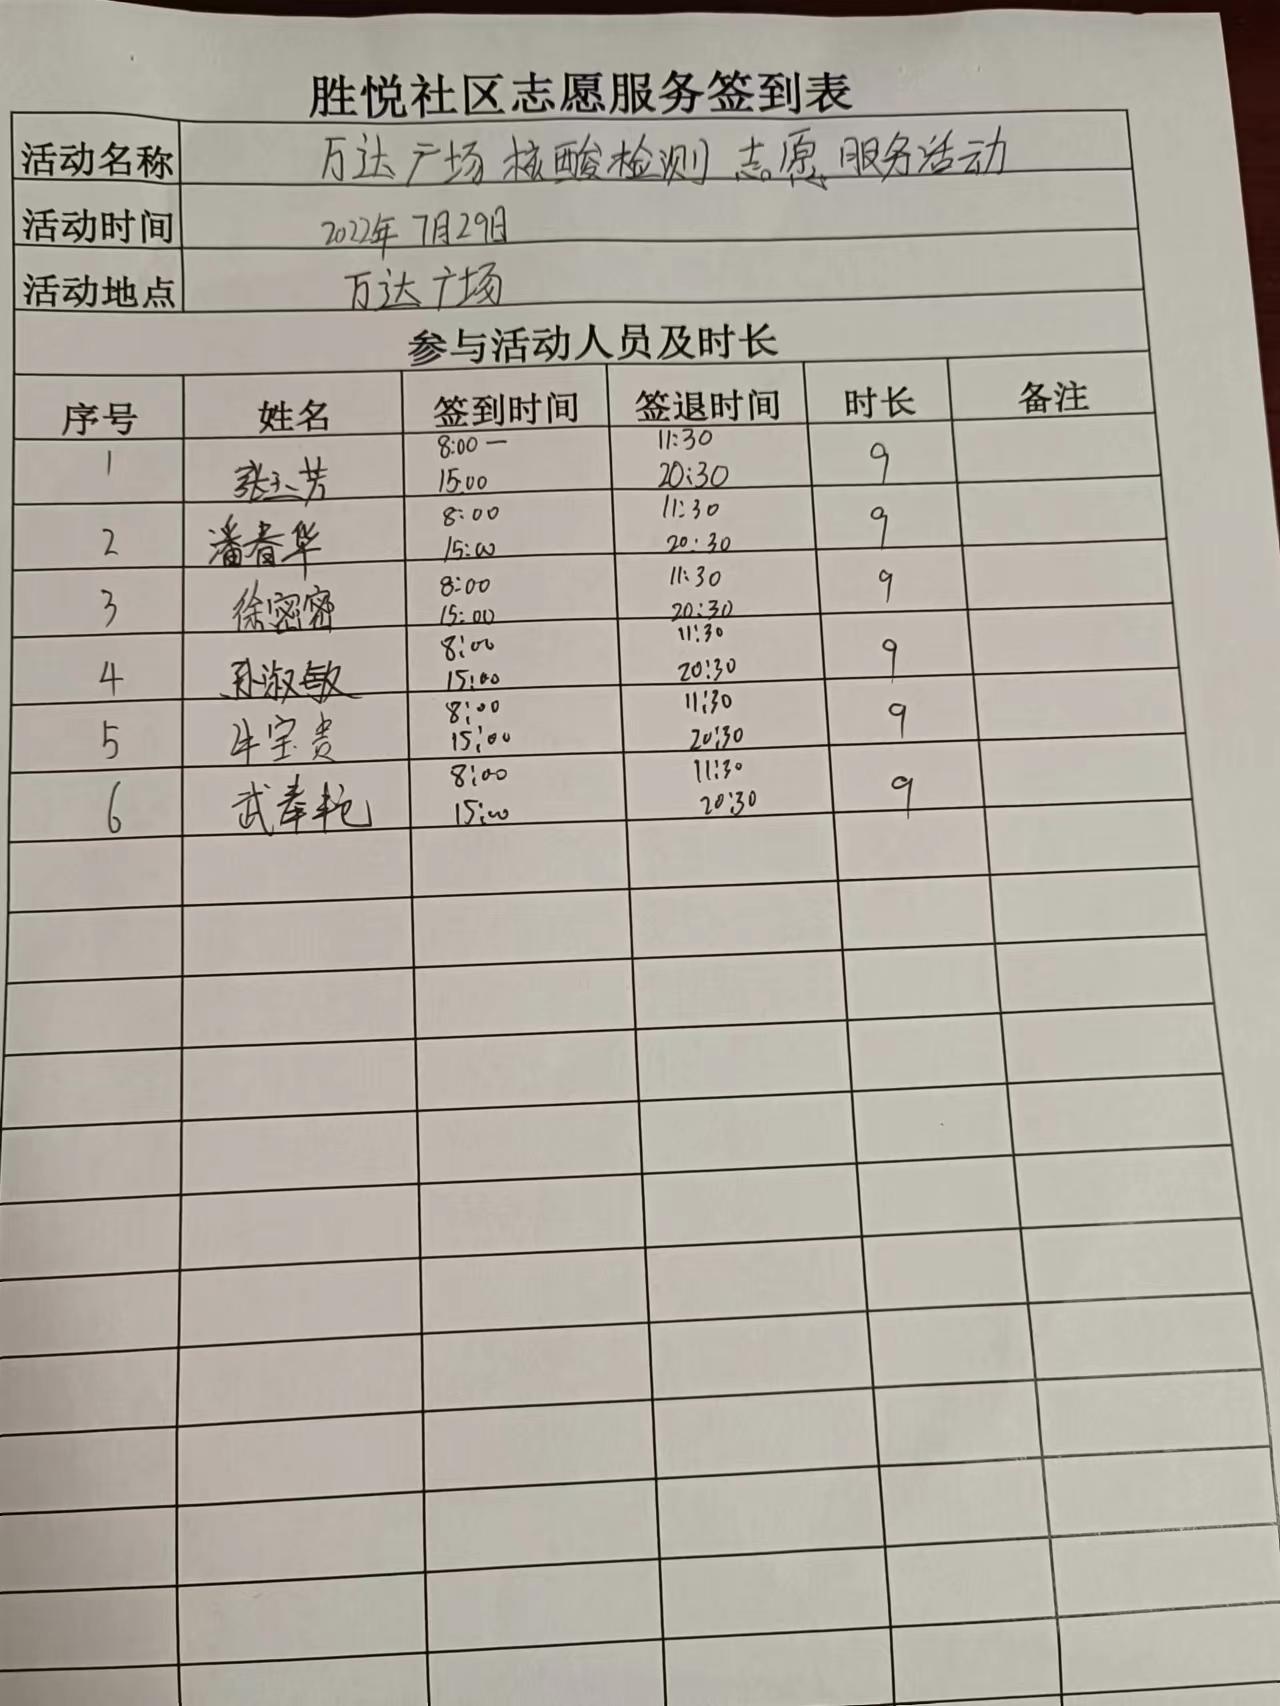 胜悦社区志愿服务签到表
活动名称 万达广场核酸检测志愿服务活动
活动时间 2022年7月29日
活动地点 万达广场
参与活动人员及时长
序号 姓名 签到时间 签退时间 时长 备注
1 8:00— 11:30 9
15:00 20:30
2 潘春华 8:00 11:30 9
15:00 20:30
3 徐密密 8:00 11:30 9
15:00 20:30
4 孙淑敏 8:00 11:30 9
15:00 20:30
5 牛宝贵 8:00 11:30 9
15:00 20:30
6 武春艳 8:00 11:30 9
15:00 20:30